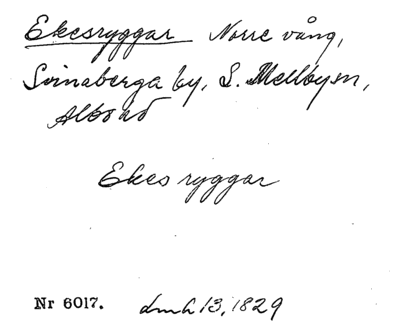 Ekesryggar Norre vång,
Svinaberga by, S. Mellby sn,
Albo hd
Ekes ryggar
Nr 6017. dmh 13, 1829